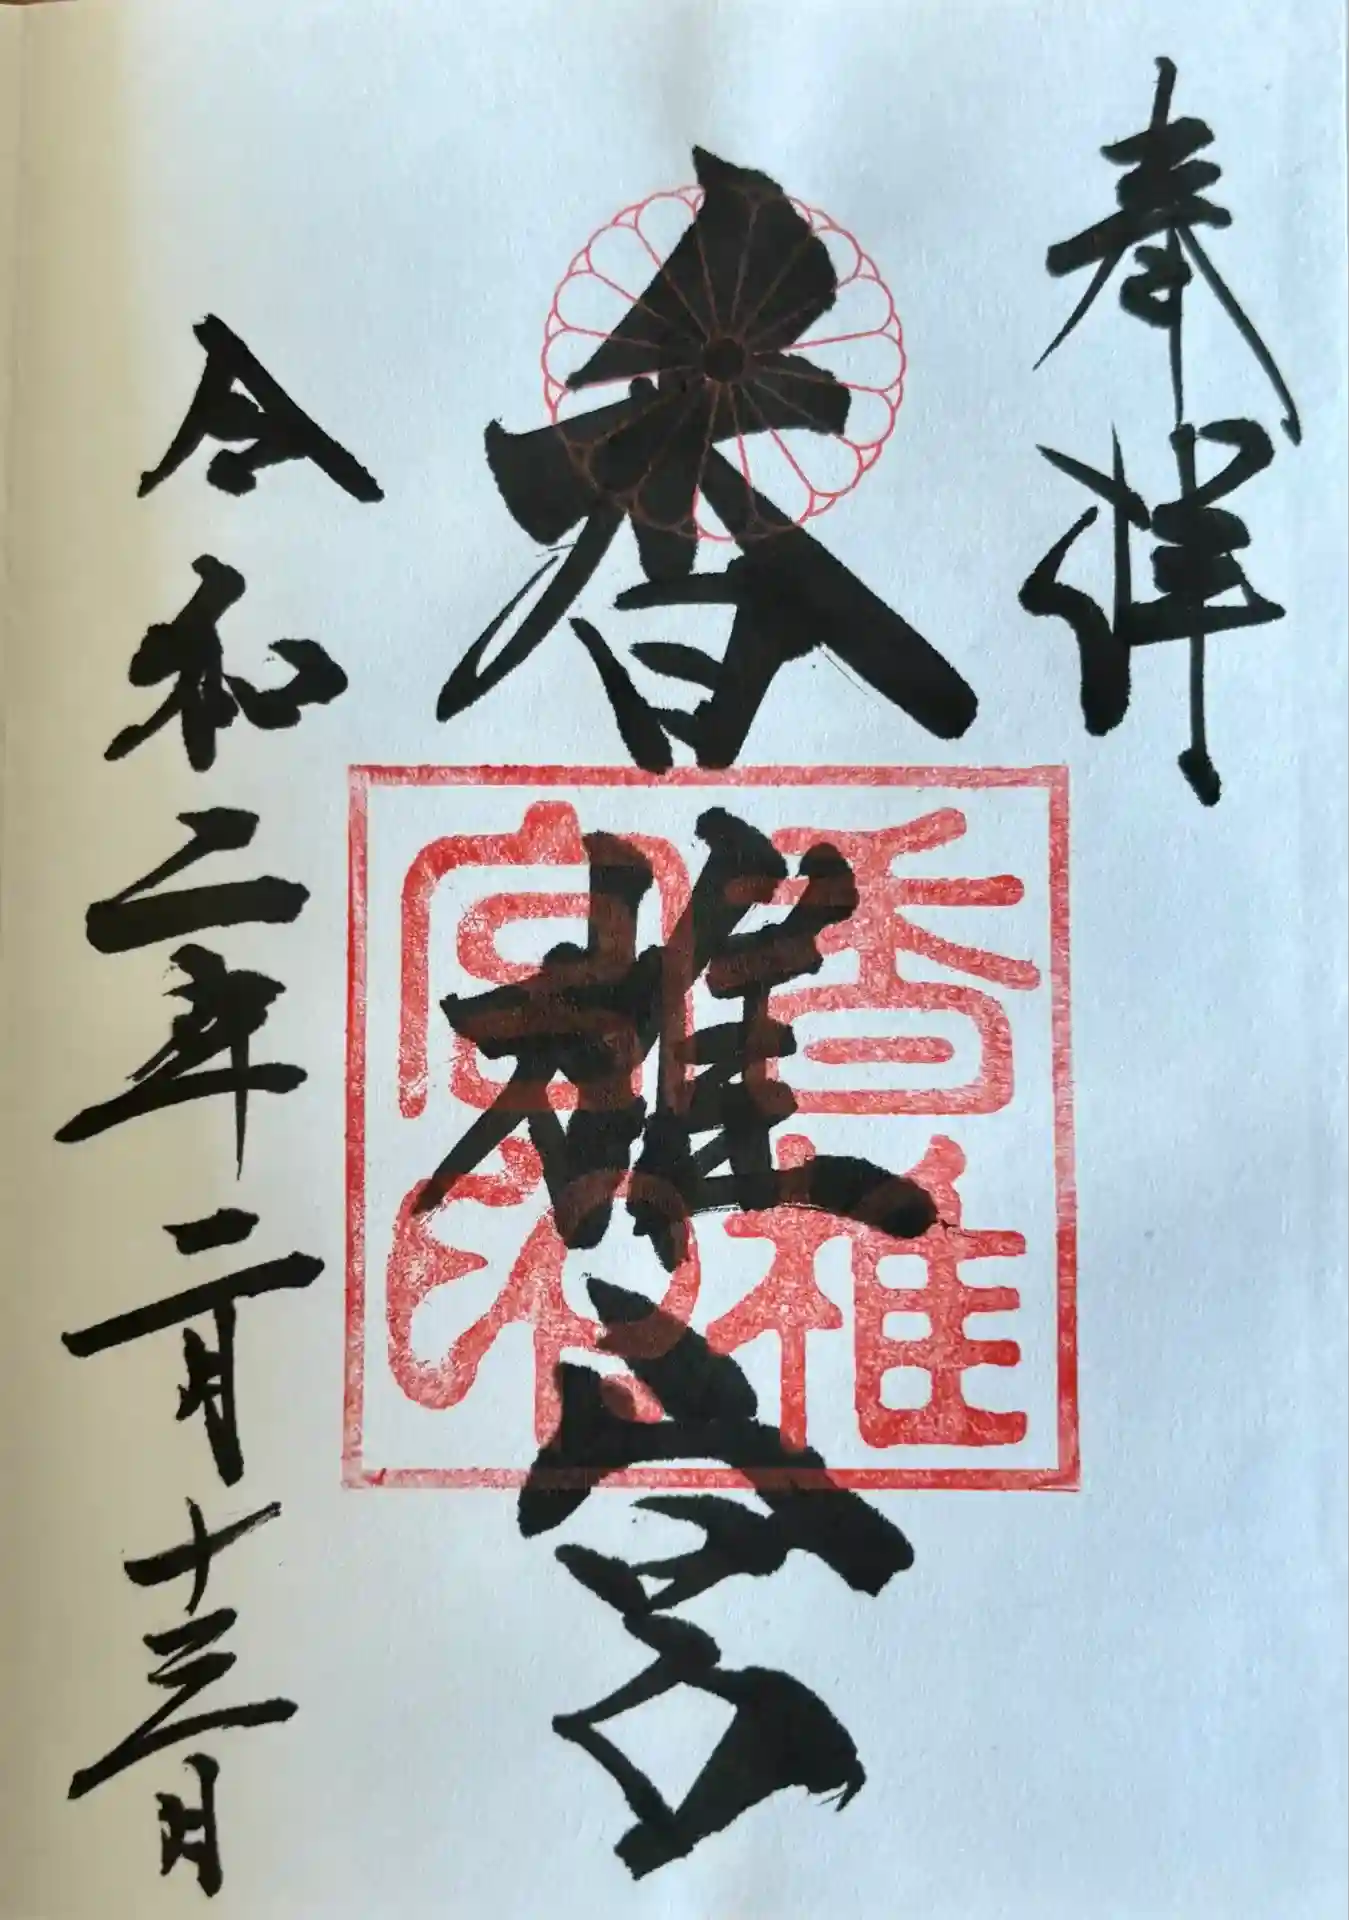 奉拝
香椎宮
香椎
宮印
令和二年二月十三日